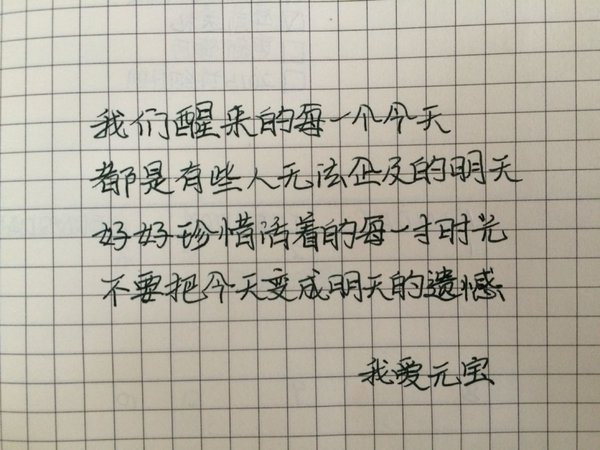 我们醒来的每一个今天
都是有些人无法企及的明天
好好珍惜活着的每一寸时光
不要把今天变成明天的遗憾
我爱元宝